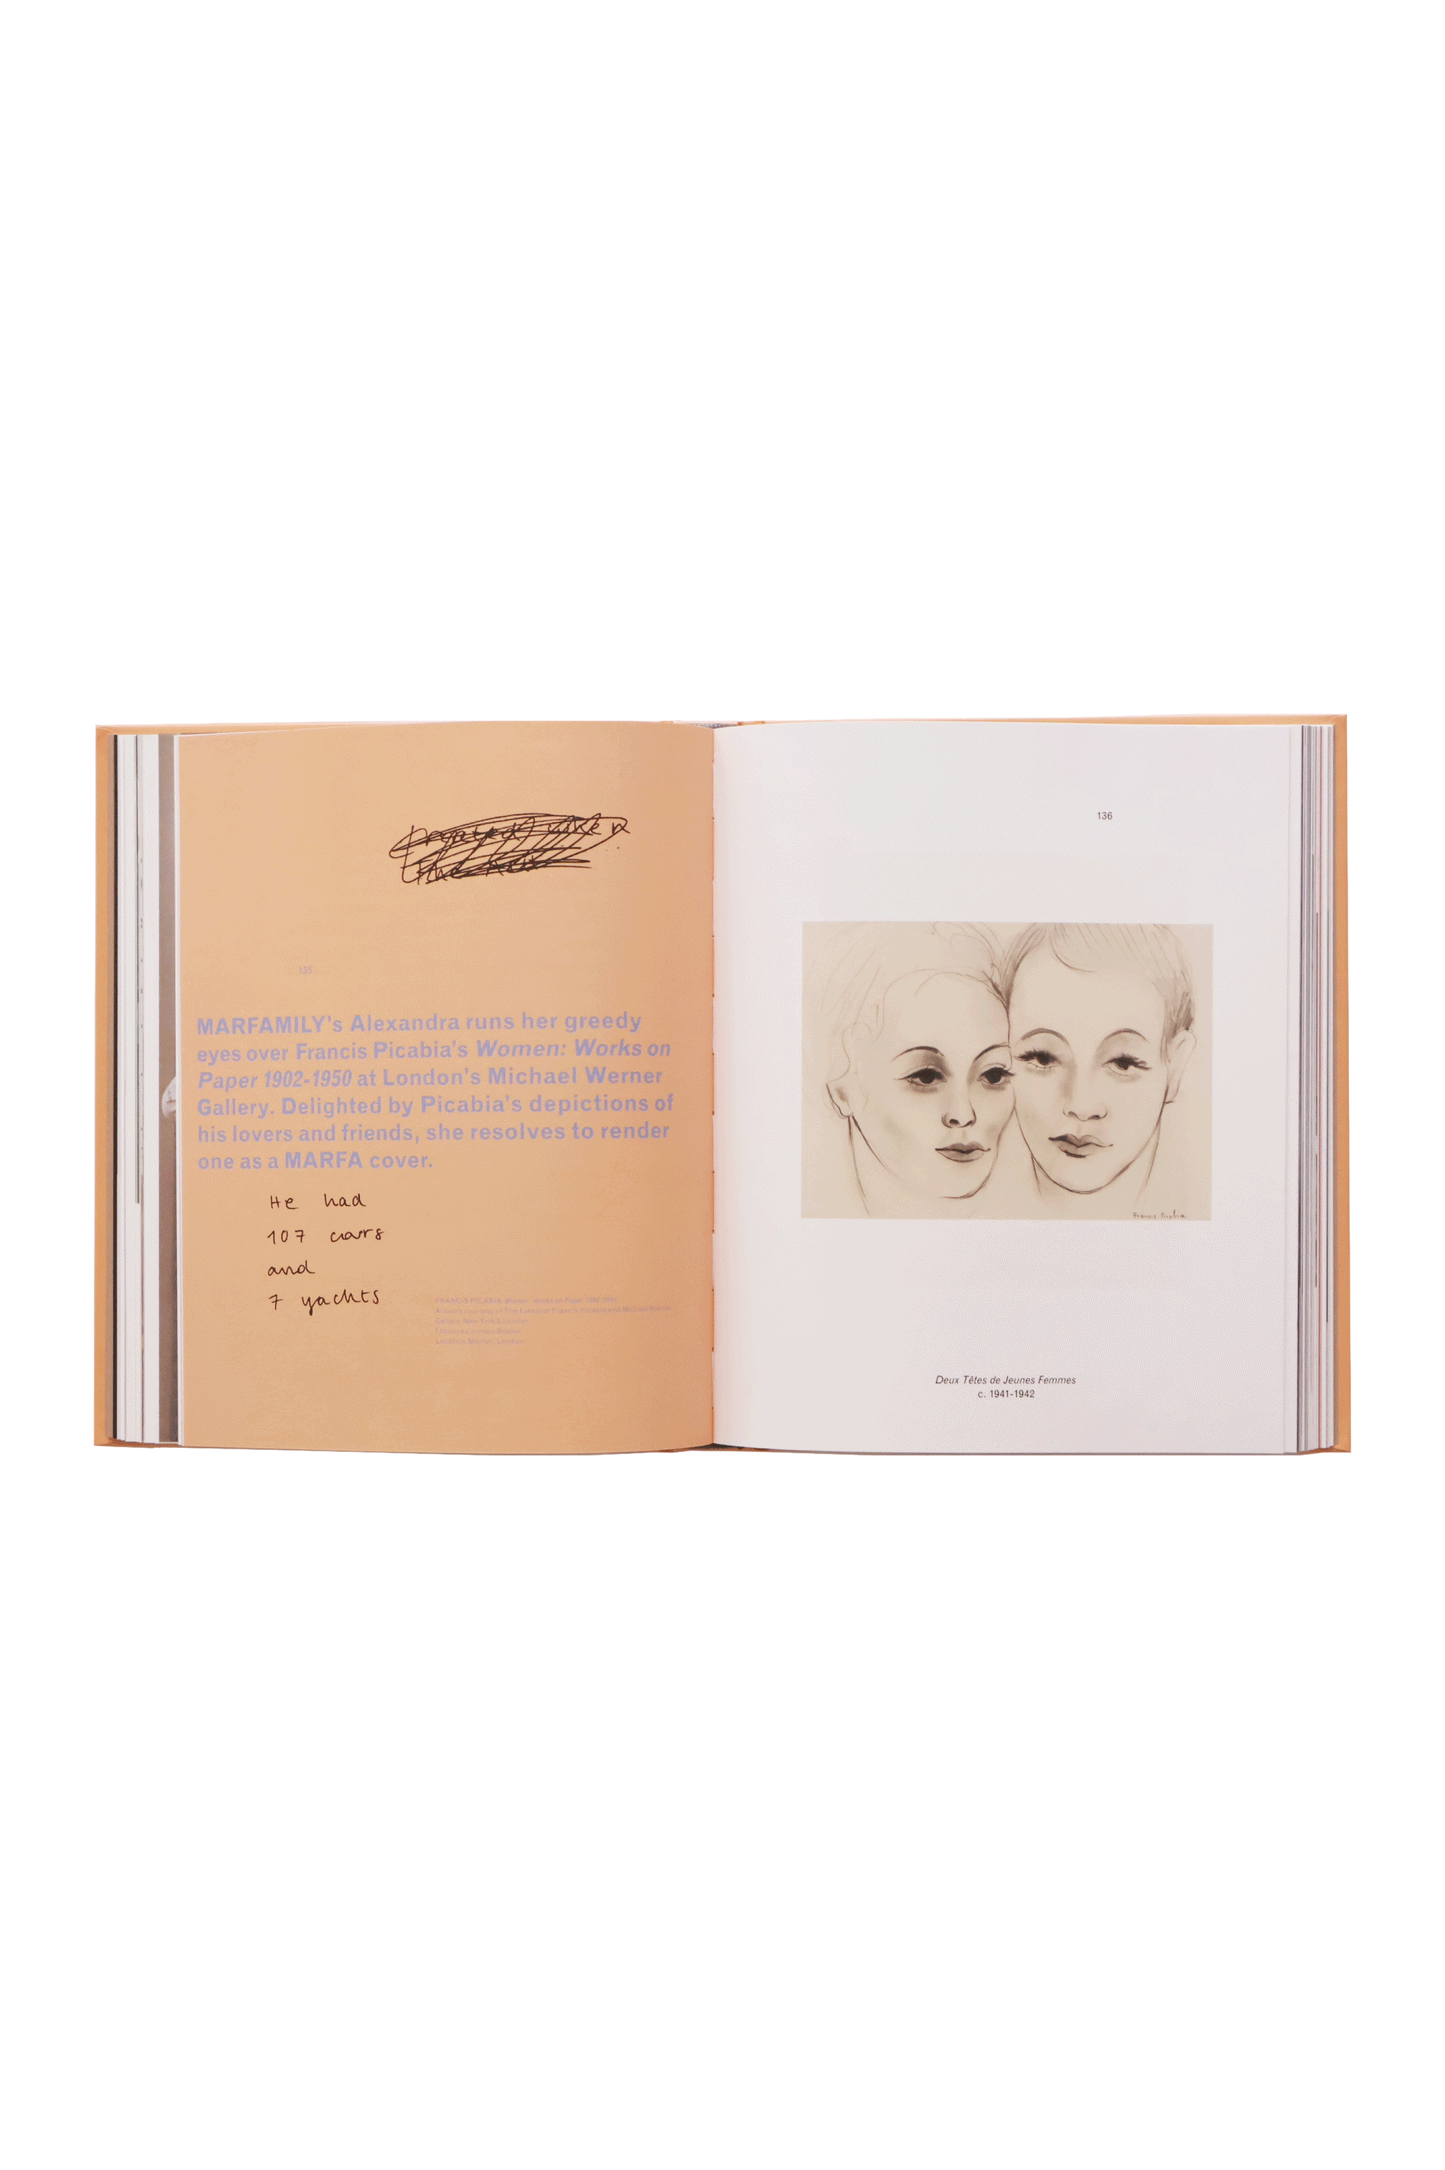 135
MARFAMILY's Alexandra runs her greedy
eyes over Francis Picabia's Women: Works on
Paper 1902-1950 at London's Michael Werner
Gallery. Delighted by Picabia's depictions of
his lovers and friends, she resolves to render
one as a MARFA cover.
He had
107 cars
and
7 yachts
FRANCIS PICABIA Women: Works on Paper 1902-1950
Gallery, New York & London
136
Francis Picabia
Deux Têtes de Jeunes Femmes
c. 1941-1942